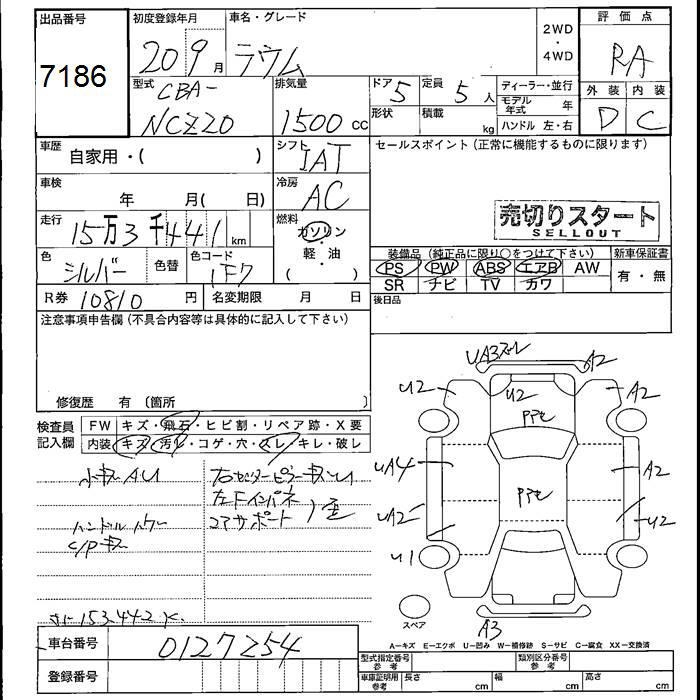 出品番号 初度登録年月 車名・グレード 評価点
7186 20 9月 ラウム 2WD・4WD RA
型式 CBA-NCZ20 排気量 1500cc ドア 5 定員 5人 ディーラー・並行 外装 内装
形状 積載 kg モデル年式 年 ハンドル 左・右 D C
車歴 自家用・( ) シフト IAT セールスポイント(正常に機能するものに限ります)
車検 年 月( 日) 冷房 AC
売切りスタート
SELLOUT
走行 15万3千441km 燃料 ガソリン・軽・油( )
色 シルバー 色替 色コード 1F7 装備品(純正品に限り○をつけて下さい) 新車保証書
PS PW ABS エアB AW 有・無
SR ナビ TV カワ
R券 10810円 名変期限 月 日 後日品
注意事項申告欄(不具合内容等は具体的に記入して下さい)
修復歴 有〔箇所 〕
検査員記入欄 FW キズ・飛石・ヒビ割・リペア跡・X要
内装 キズ・汚レ・コゲ・穴・スレ・キレ・破レ
小キズAU 右センターピラーキズU1
左Fインパネ
ハンドル コアサポート
C/Pキズ
153442K
UA3 A2
U2 U2 A2
UA4 A2
UA2 U2
U1
スペア A3
A−キズ E−エクボ U−凹み W−補修跡 S−サビ C−腐食 XX−交換済
車台番号 0127254 型式指定番号 参考 類別区分番号 参考
登録番号 車庫証明用 参考 長さ cm 幅 cm 高さ cm